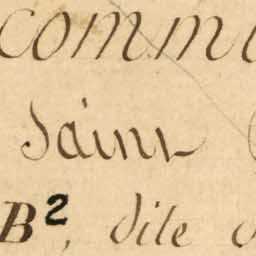 commu
Saint
B², dite